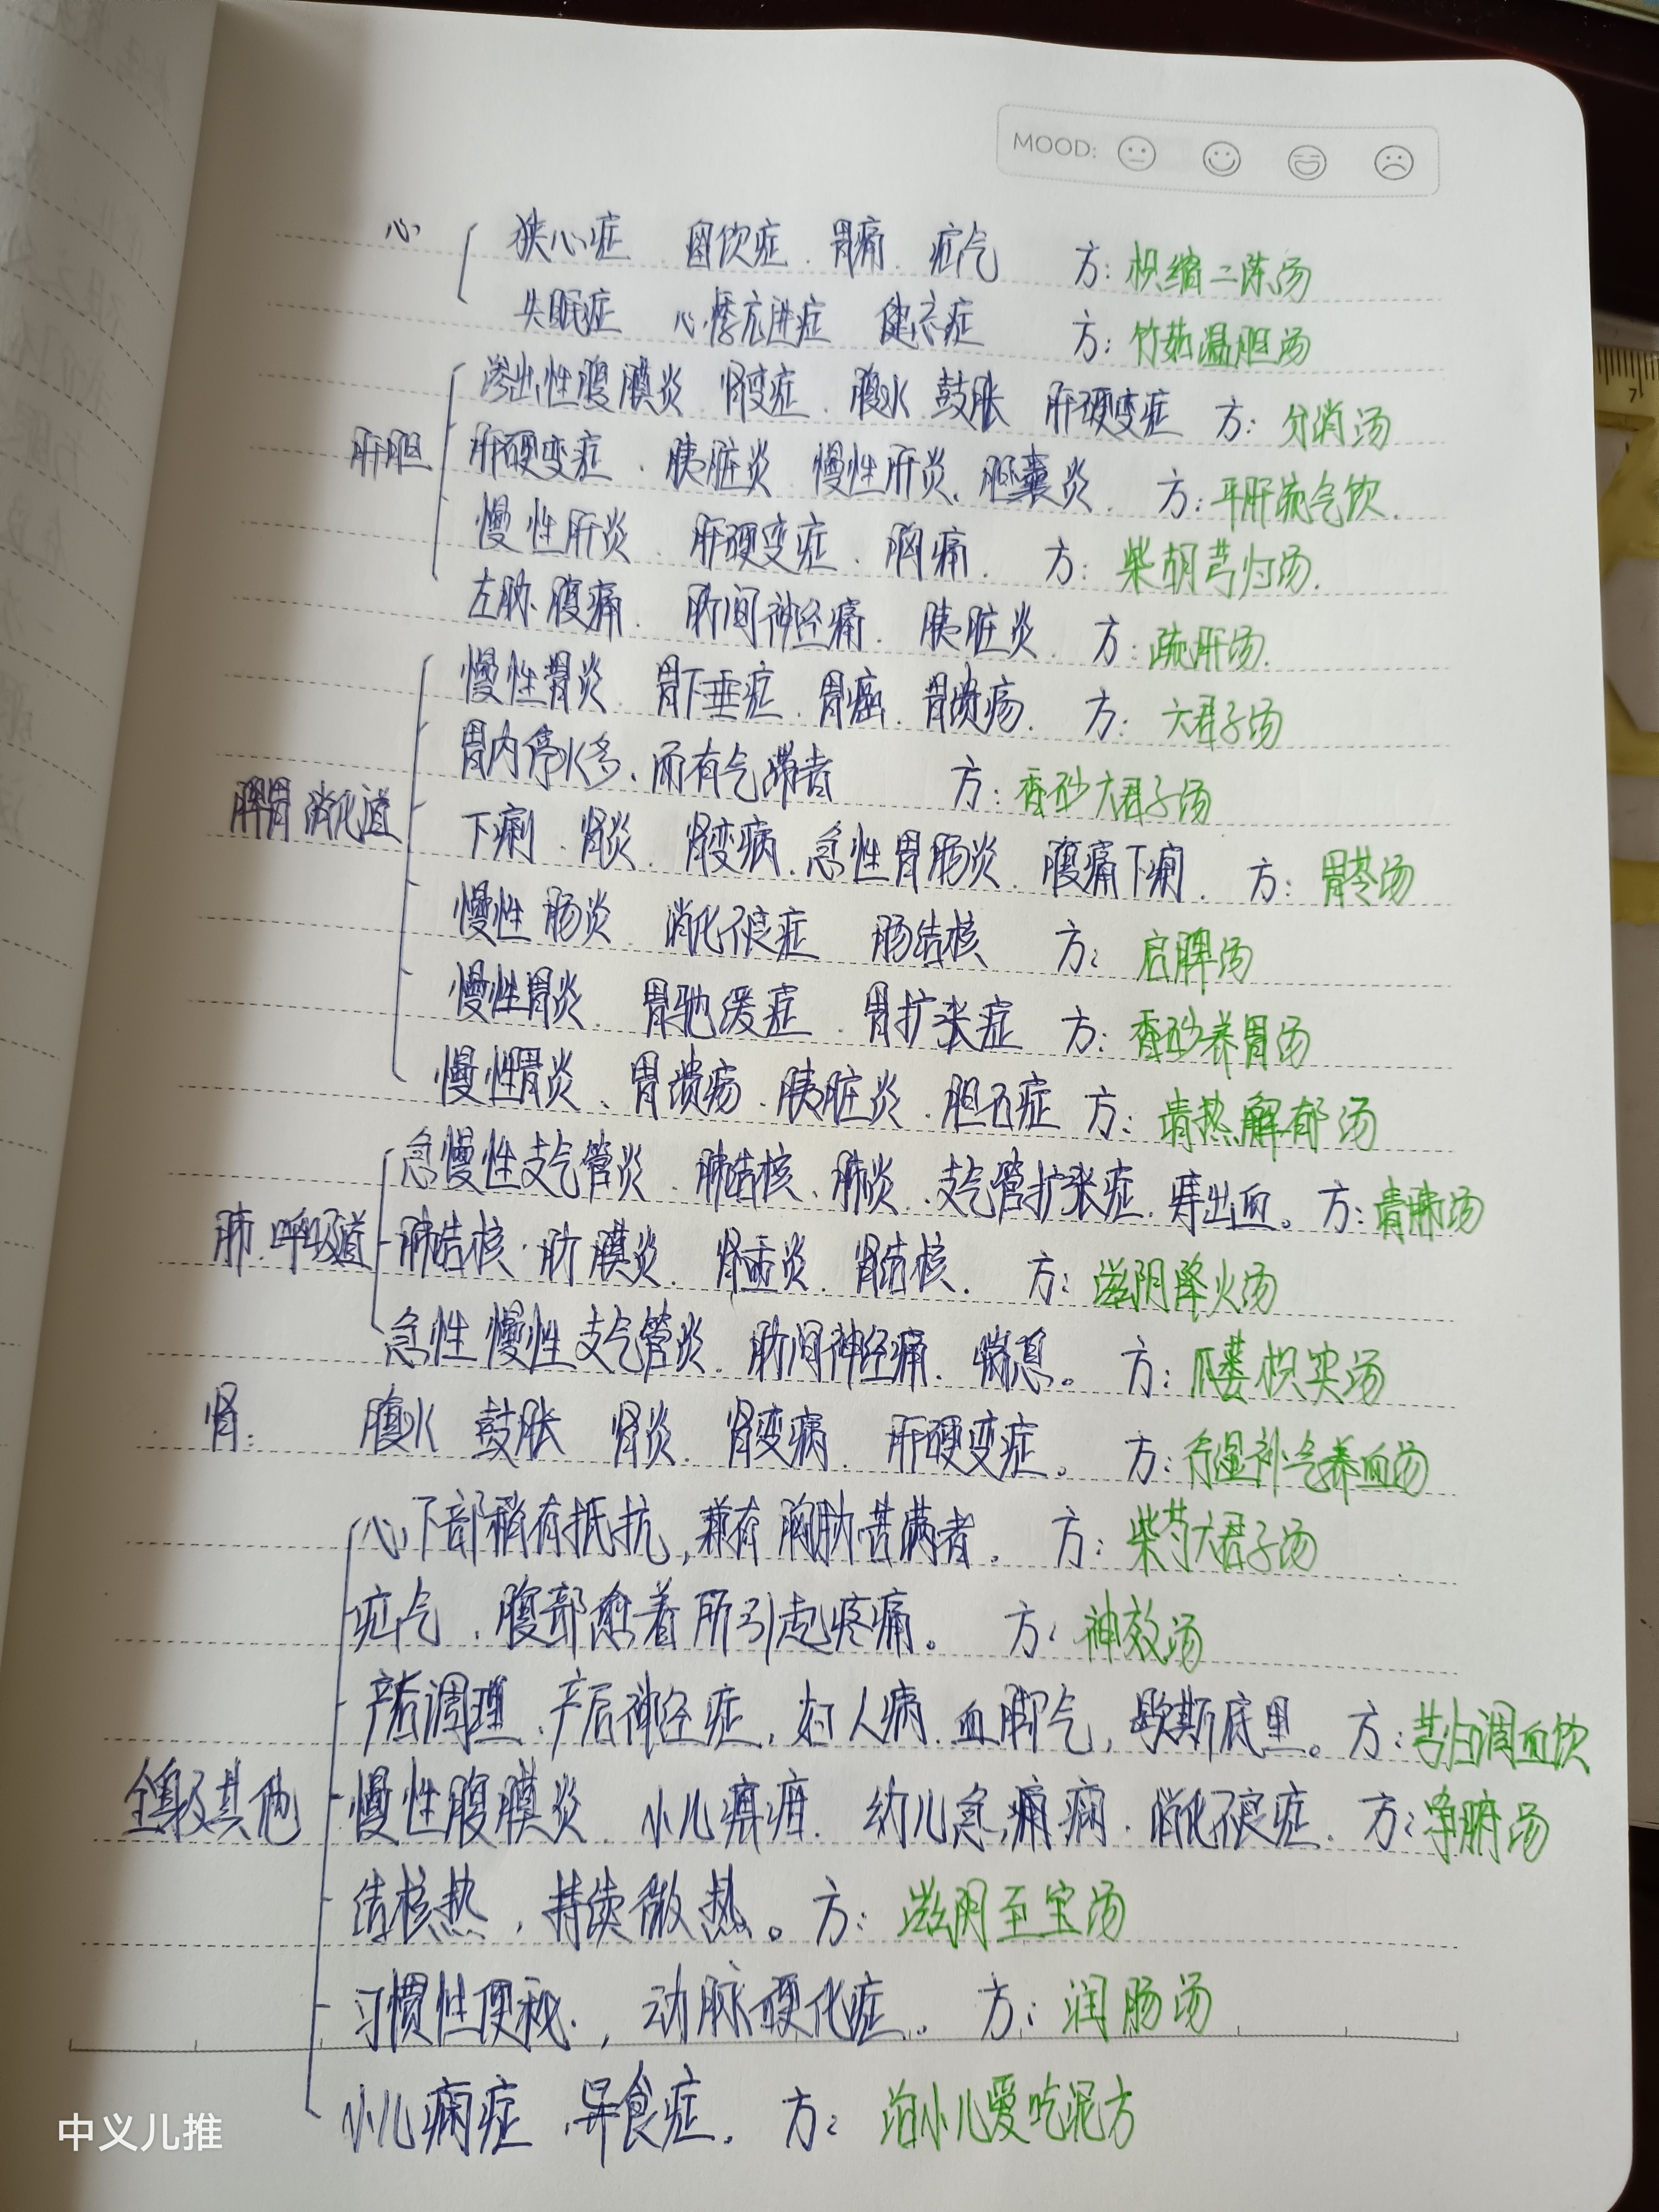 MOOD:
心 狭心症 留饮症 胃痛 疝气 方: 枳缩二陈汤
失眠症 心悸亢进症 健忘症 方: 竹茹温胆汤
渗出性腹膜炎 肾变症 腹水 鼓胀 肝硬变症 方: 分消汤
肝胆 肝硬变症 胰脏炎 慢性肝炎 胆囊炎 方: 平肝流气饮
慢性肝炎 肝硬变症 胸痛 方: 柴胡芎归汤
左胁腹痛 肋间神经痛 胰脏炎 方: 疏肝汤
慢性胃炎 胃下垂症 胃癌 胃溃疡 方: 六君子汤
胃内停水多、而有气滞者 方: 香砂六君子汤
脾胃 消化道 下痢 肾炎 肾变病 急性胃肠炎 腹痛下痢 方: 胃苓汤
慢性肠炎 消化不良症 肠结核 方: 启脾汤
慢性胃炎 胃驰缓症 胃扩张症 方: 香砂养胃汤
慢性胃炎、胃溃疡 胰脏炎 胆石症 方: 清热解郁汤
急慢性支气管炎 肺结核、肺炎 支气管扩张症 痔出血。方: 清肺汤
肺、呼吸道 肺结核 肋膜炎 肾盂炎 肾结核 方: 滋阴降火汤
急性慢性支气管炎 肋间神经痛 喘息。 方: 瓜蒌枳实汤
肾: 腹水 鼓胀 肾炎 肾变病 肝硬变症。 方: 行湿补气养血汤
心下部稍有抵抗,兼有胸胁苦满者。 方: 柴芍六君子汤
疝气、腹部愈着所引起疼痛。 方: 神效汤
产后调理、产后神经症, 妇人病 血脚气, 歇斯底里。方: 芎归调血饮
全身及其他 慢性腹膜炎 小儿癖疳 幼儿急痫病 消化不良症 方: 净腑汤
结核热,持续微热。方: 滋阴至宝汤
习惯性便秘, 动脉硬化症。 方: 润肠汤
小儿痫症 异食症。 方: 治小儿爱吃泥方
中义儿推